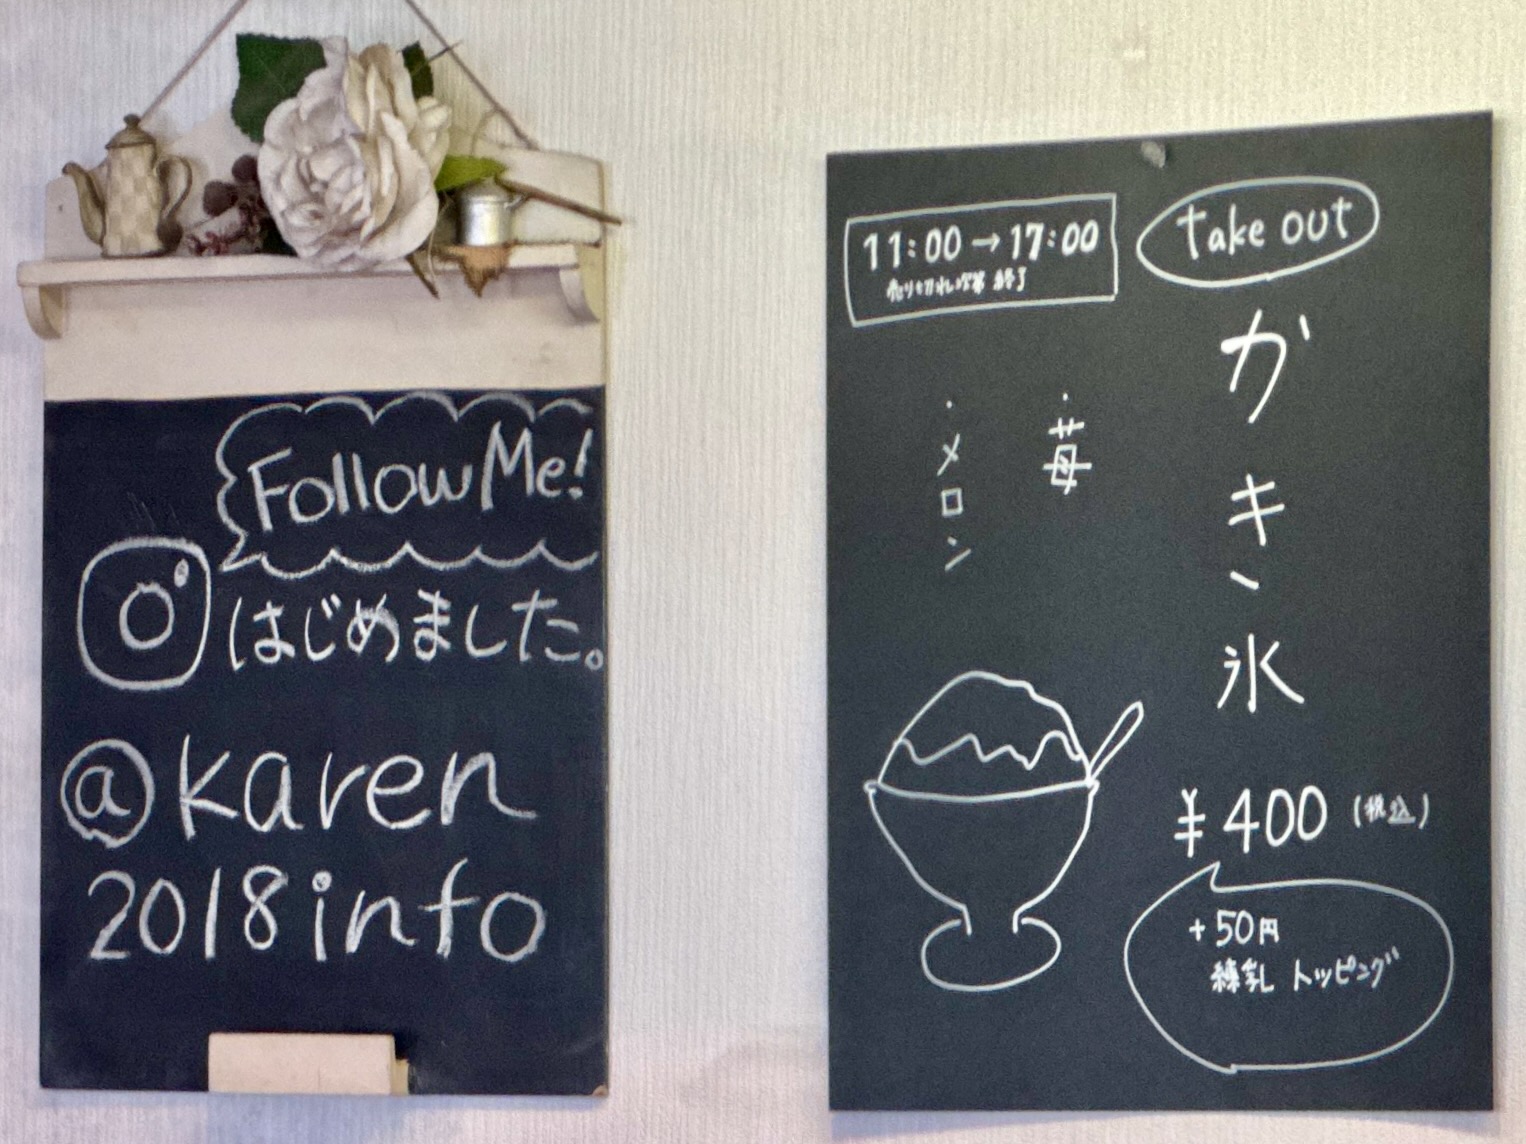 Follow Me!
はじめました。
@karen
2018info
Take out
11:00→17:00
売り切れ次第 終了
かき氷
・苺
・メロン
¥400(税込)
+50円
練乳 トッピング